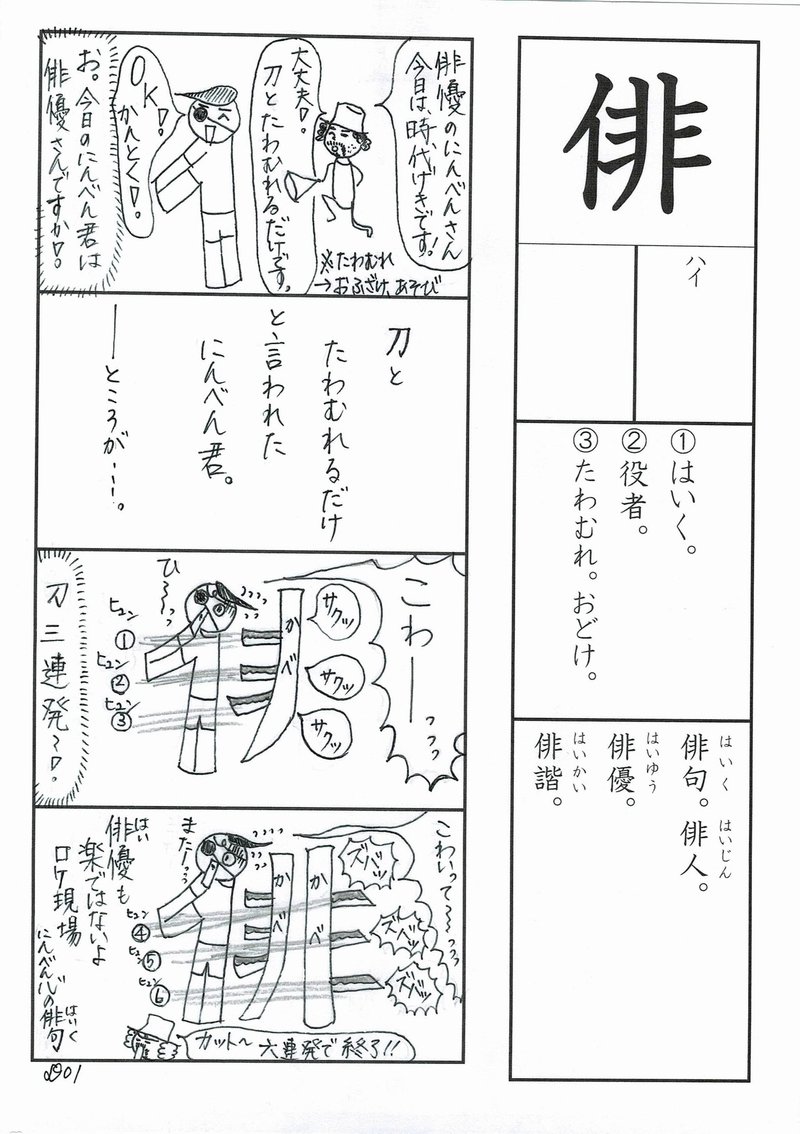 俳
ハイ
①はいく。
②役者。
③たわむれ。おどけ。
俳句。俳人。
はいく
はいじん
俳優。
はいゆう
俳諧。
はいかい
俳優のにんべんさん
今日は、時代げきです!
大丈夫!。
刀とたわむれるだけです。
※たわむれ
→おふざけ、あそび
OK!
かんとく!。
お。今日のにんべん君は
俳優さんですか!。
刀と
たわむれるだけ
と言われた
にんべん君。
ーところが…。
こわーっっっ
サクッ
サクッ
サクッ
かべ
ひ〜っっ
ヒュン①
ヒュン②
ヒュン③
刀三連発〜!。
こわいって〜っっっ
ズバッ
ズバッ
ズバッ
かべ
かべ
また〜っっ
ヒュン④
ヒュン⑤
ヒュン⑥
俳優も
はい
楽ではないよ
ロケ現場
にんべん心の俳句
はいく
カット〜
六連発で終了!!